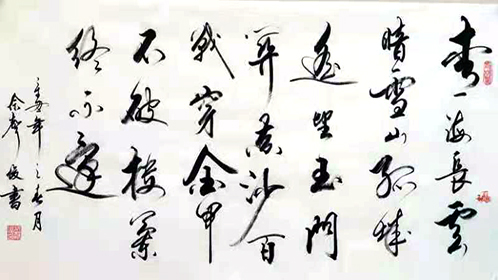 青海長雲
暗雪山孤城
遥望玉門
關黄沙百
戰穿金甲
不破樓蘭
終不還
年之春月
書